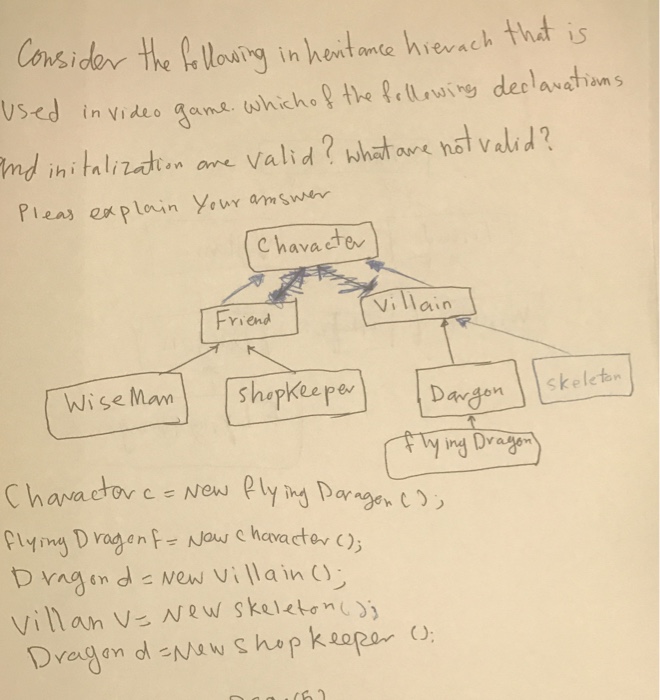 Consider the following inheritance hierach that is
Used in video game. which of the following declarations
and initalization are valid? what are not valid?
Pleas explain Your answer
Character
Friend
Villain
Wise Man
ShopKeeper
Dargon
Skeleton
flying Dragon
Charactor c = New flying Daragon ();
flying Dragon f = New character ();
Dragon d = New Villain ();
Villan V = New skeleton ();
Dragon d = New shop keeper ();